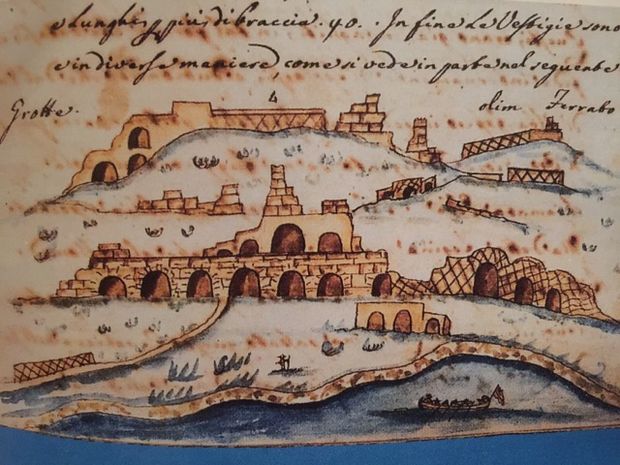 e Lunghi più di braccia 40. In fine Le Vestigie sono
e in diverse maniere, come si vede in parte nel seguente
Grotte.
4
olim Ferrabo